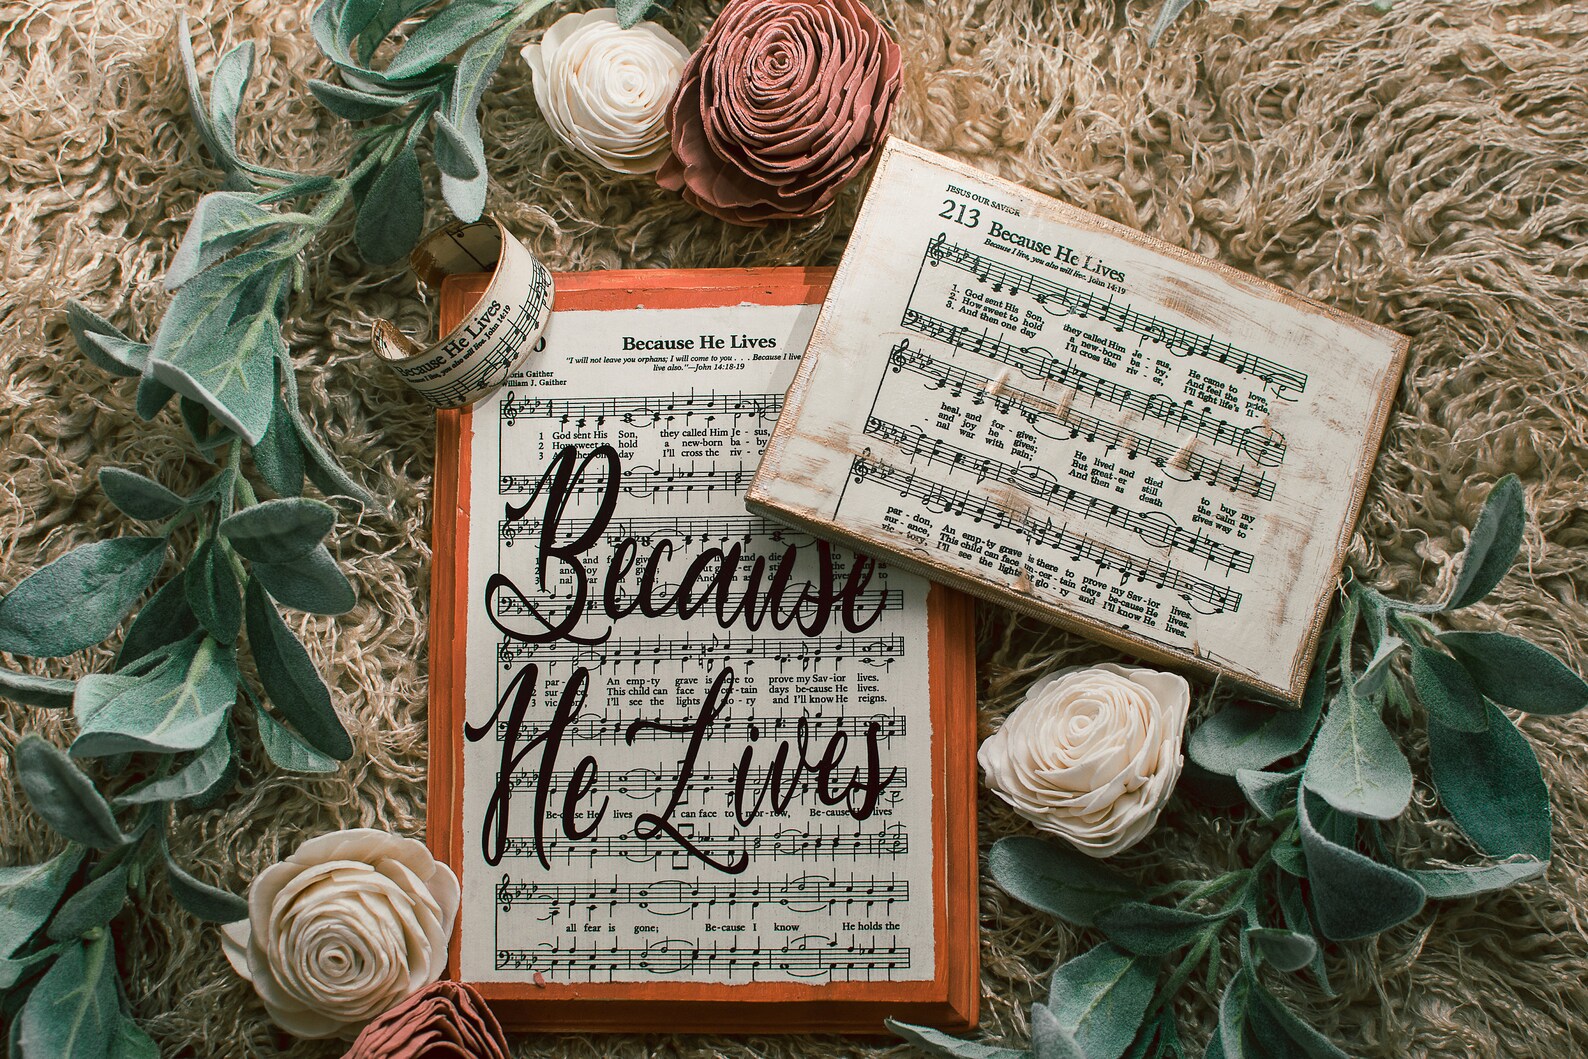 JESUS OUR SAVIOR
213 Because He Lives
Because I live, you also will live. John 14:19
1. God sent His Son, they called Him Je - sus, He came to love,
2. How sweet to hold a new-born ba - by, And feel the pride,
3. And then one day I'll cross the riv - er, I'll fight life's fi -
heal, and for - give; He lived and died to buy my
and joy he gives; But great - er still the calm as -
nal war with pain; And then as death gives way to
par - don, An emp - ty grave is there to prove my Sav - ior lives.
sur - ance, This child can face un - cer - tain days be-cause He lives.
vic - tory, I'll see the lights of glo - ry and I'll know He lives.
Because He Lives
I live, you also will live. John 14:19
Because He Lives
"I will not leave you orphans; I will come to you . . . Because I live
live also."—John 14:18-19
Gaither
William J. Gaither
1 God sent His Son, they called Him Je - sus,
2 How sweet to hold a new-born ba - by
3 And then one day I'll cross the riv - e
Because
par - An emp - ty grave is to prove my Sav - ior lives.
2 sur - This child can face un - cer - tain days be-cause He lives.
3 vic - I'll see the lights glo - ry and I'll know He reigns.
He Lives
Be - cause He lives I can face to - mor - row, Be - cause lives
all fear is gone; Be - cause I know He holds the